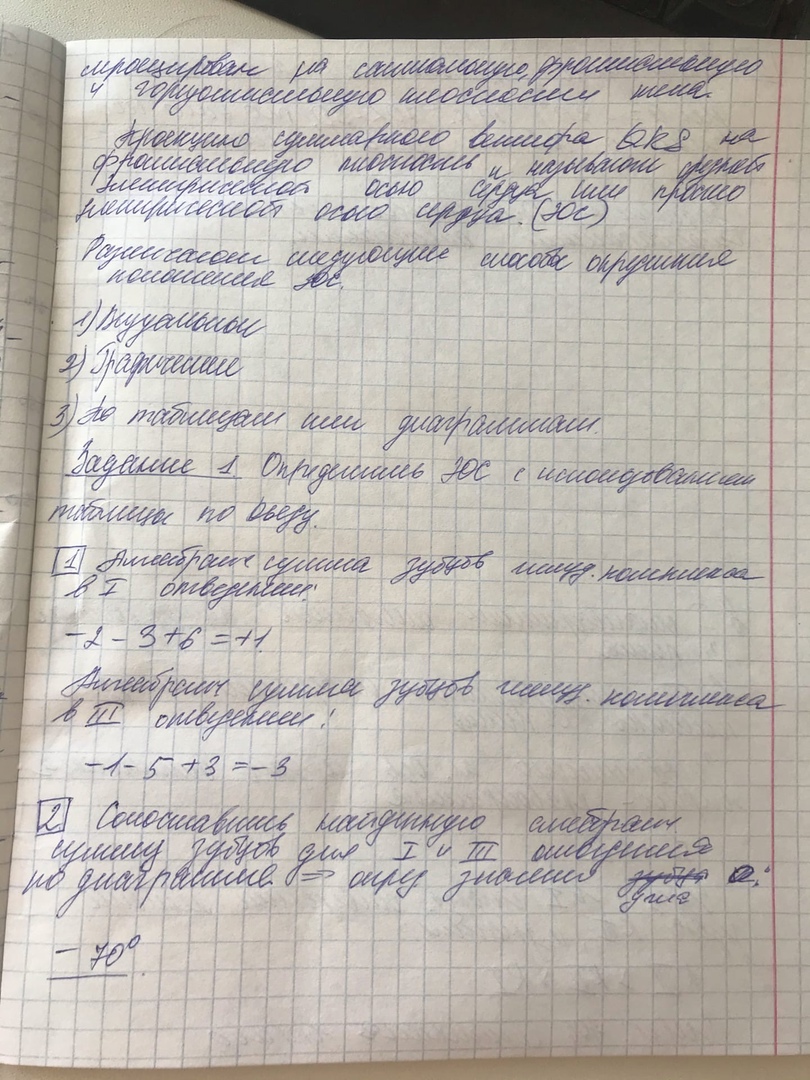 проецирован на сагитальную, фронтальную
и горизонтальную плоскости тела.
Проекцию суммарного вектора QRS на
фронтальную плоскость и называют средней
электрической осью сердца или просто
электрической осью сердца. (ЭОС)
Различают следующие способы опрделения
положения ЭОС.
1) Визуальный
2) Графический
3) По таблицам или диаграммам.
Задание 1. Определить ЭОС с использованием
таблицы по Дьеду.
1 Алгебраич сумма зубцов желуд. комплекса
в I отведении:
-2 - 3 + 6 = +1.
Алгебраич сумма зубцов желуд. комплекса
в III отведении:
-1 - 5 + 3 = -3
2 Сопоставить найденную алгебраич
сумму зубцов для I и III отведения
по диаграмме => опред значение угла α:
- 70°.